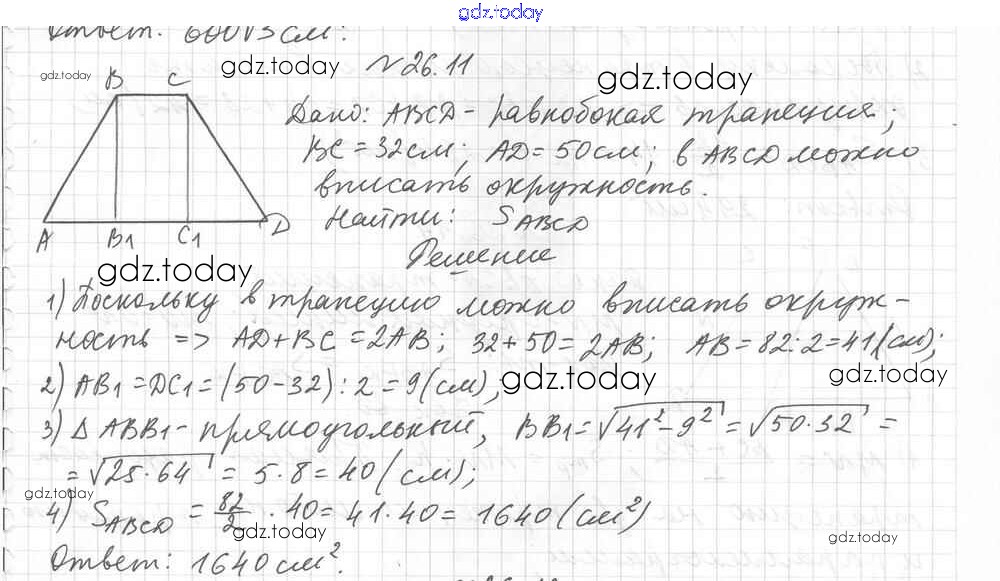 gdz.today
Ответ: 600√3 см².
gdz.today
№ 26.11
gdz.today
gdz.today
B C
Дано: ABCD - равнобокая трапеция;
BC = 32 см; AD = 50 см; в ABCD можно
вписать окружность.
Найти: S_ABCD
A B1 C1 D
Решение
gdz.today
1) Поскольку в трапецию можно вписать окруж-
ность => AD + BC = 2AB; 32 + 50 = 2AB; AB = 82 : 2 = 41 (см);
2) AB1 = DC1 = (50 - 32) : 2 = 9 (см),
gdz.today
gdz.today
3) Δ ABB1 - прямоугольный, BB1 = √41² - 9² = √50 · 32 =
= √25 · 64 = 5 · 8 = 40 (см);
gdz.today
4) S_ABCD = 82/2 · 40 = 41 · 40 = 1640 (см²)
gdz.today
gdz.today
Ответ: 1640 см².